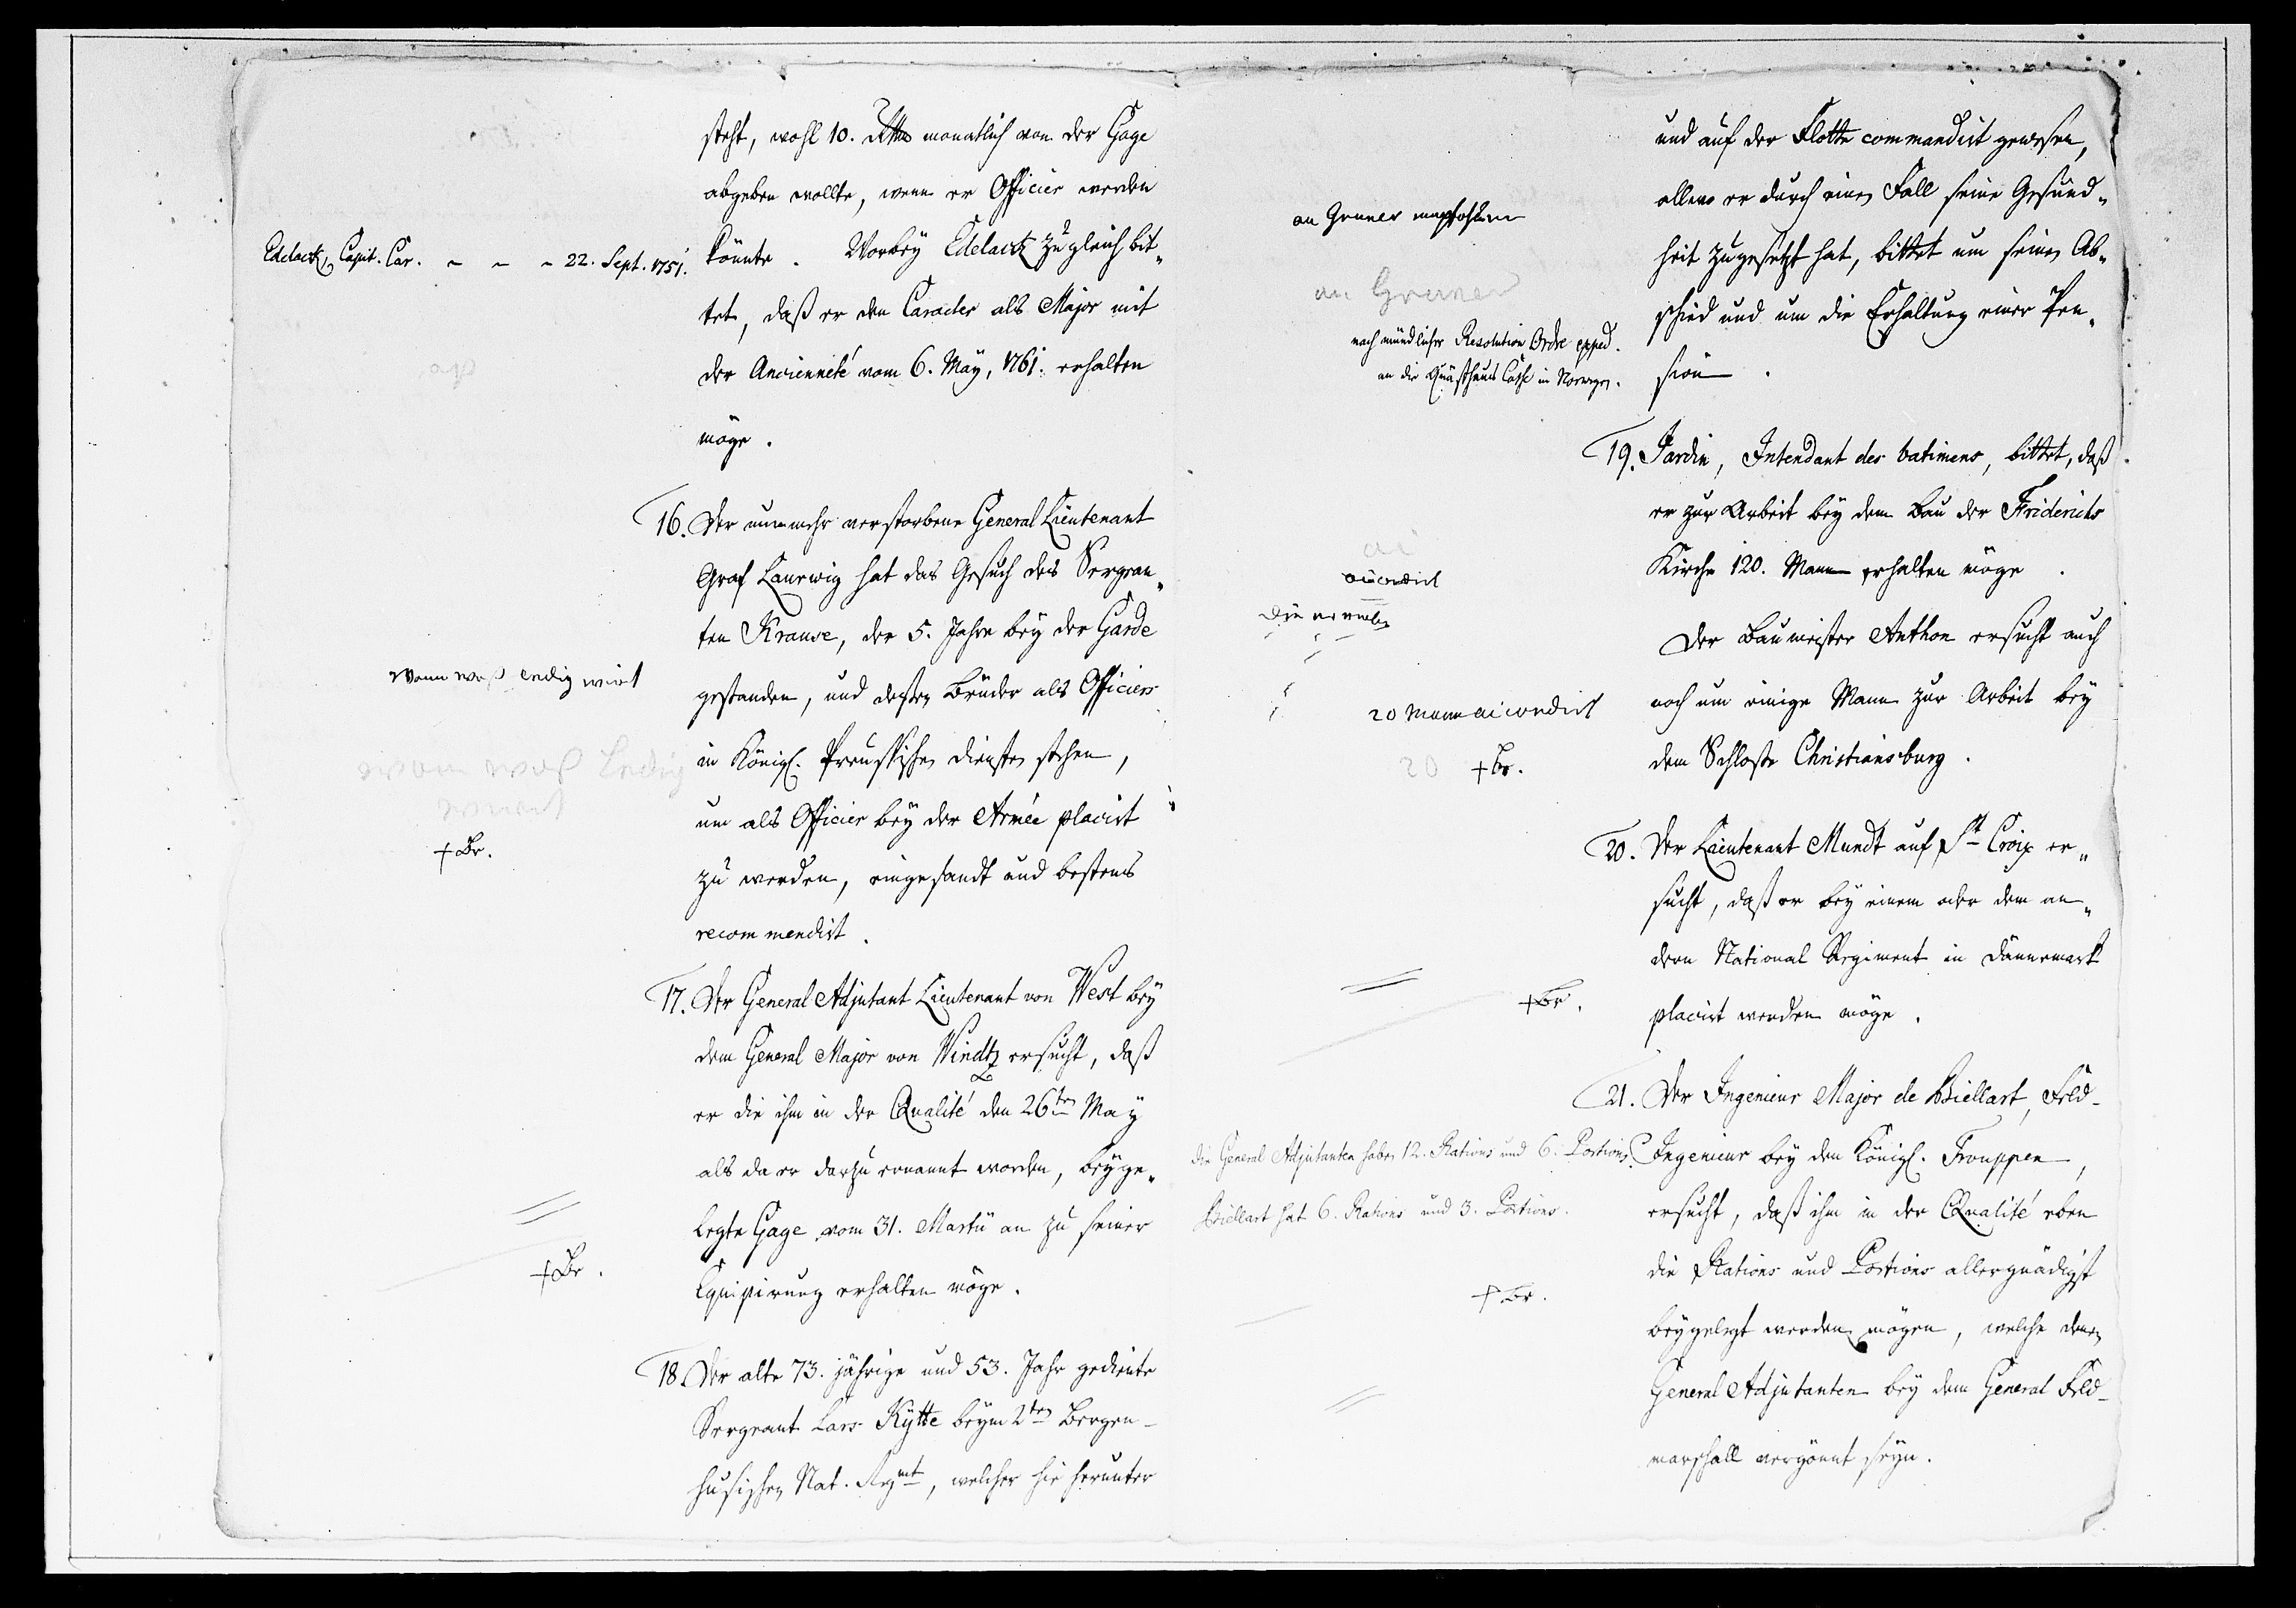 steht, wohl 10. Rthlr monatlich von der Gage
abgeben wollte, wenn er Officier werden
könnte. Worbey Edelack zugleich bit-
Edelack, Capit. Car. - - - 22. Sept. 1751.
tet, daß er den Caracter als Major mit
der Ancienneté vom 6. May, 1761. erhalten
möge.
16. Der nunmehr verstorbene General Lieutenant
Graf Laurwig hat das Gesuch des Sergean-
ten Krause, der 5. Jahre bey der Garde
gestanden, und deßen Brüder als Officiers
in Königl. Preußischen Diensten stehen,
um als Officier bey der Armée placirt
zu werden, eingesandt und bestens
recommendirt.
wann waß ledig wird
wann waß ledig
wird
+Br.
17. Der General Adjutant Lieutenant von West bey
dem General Major von Windtz ersucht, daß
er die ihm in der Qualité den 26ten May
als da er darzu ernannt worden, beyge-
legte Gage vom 31. Martii an zu seiner
Equipirung erhalten möge.
+Br.
18. Der alte 73. jährige und 53. Jahr gediente
Sergeant Lars Kytte beym 2ten Bergen-
husischen Nat. Regmt, welcher hie herunter
und auf der Flotte commandirt gewesen,
allwo er durch einen Fall seine Gesund-
heit zugesetzt hat, bittet um seinen Ab-
schied und um die Erhaltung einer Pen-
sion.
an Gruner
an Gruner
nach mündlicher Resolution Ordre exped.
an die Quästhaus Caße in Norwegen.
19. Jardin, Intendant des batimens, bittet, daß
er zur Arbeit bey dem Bau der Friderichs
Kirche 120. Mann erhalten möge.
accordirt
Der Baumeister Anthon ersucht auch
noch um einige Mann zur Arbeit bey
dem Schloße Christiansburg.
20 Mann accordirt
20
+Br.
20. Der Lieutenant Mundt auf St Croix er-
sucht, daß er bey einem oder dem an-
dern National Regiment in Dännemark
placirt werden möge.
+Br.
21. Der Ingenieur Major de Biellart, Feld-
Ingenieur bey den Königl. Trouppen,
ersucht, daß ihm in der Qualité eben
die Rations und Portions allergnädigst
beygelegt werden mögen, welche denen
General Adjutanten bey dem General Feld-
marschall vergönnt seyn.
die General Adjutanten haben 12. Rations und 6. Portions.
Biellart hat 6. Rations und 3. Portions.
+Br.